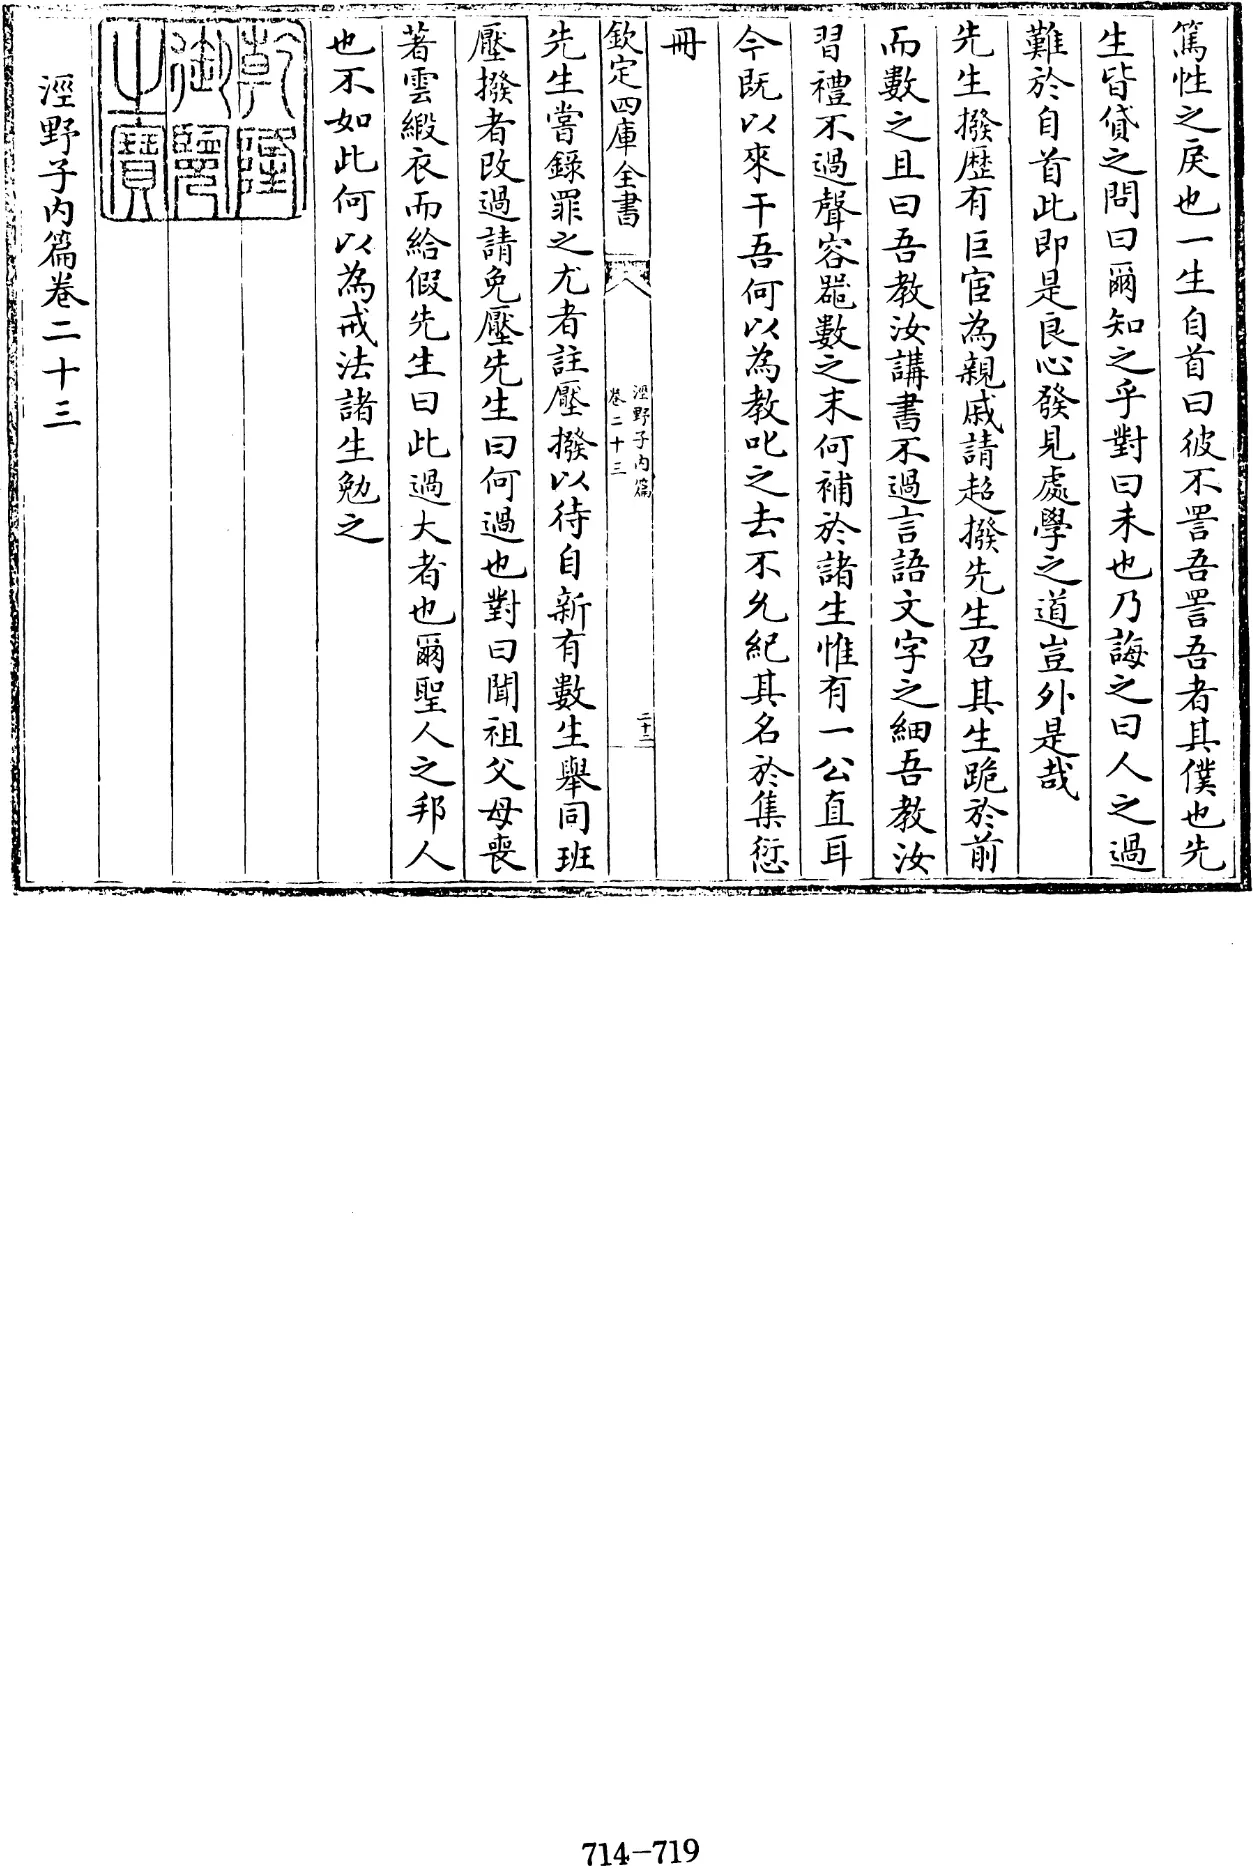 篤性之戾也一生自首曰彼不詈吾詈吾者其僕也先
生皆貸之問曰爾知之乎對曰未也乃誨之曰人之過
難於自首此即是良心發見處學之道豈外是哉
先生撥歷有巨宦為親戚請超撥先生召其生跪於前
而數之且曰吾教汝講書不過言語文字之細吾教汝
習禮不過聲容噐數之末何補於諸生惟有一公直耳
今既以來干吾何以為教叱之去不允紀其名於集愆
冊
欽定四庫全書
涇野子内篇
卷二十三
二十三
先生嘗錄罪之尤者註壓撥以待自新有數生舉同班
壓撥者改過請免壓先生曰何過也對曰聞祖父母喪
著雲緞衣而給假先生曰此過大者也爾聖人之邦人
也不如此何以為戒法諸生勉之
乾隆御覽之寶
涇野子内篇卷二十三
714-719